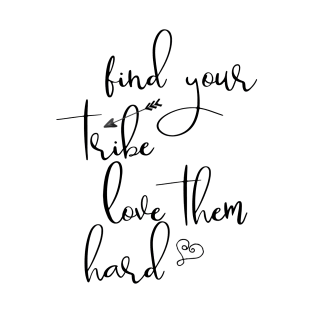 find your
tribe
love them
hard